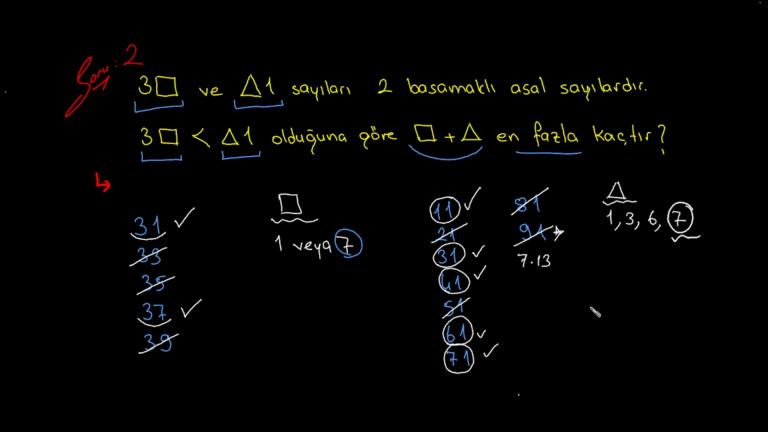 Soru: 2
3□ ve △1 sayıları 2 basamaklı asal sayılardır.
3□ < △1 olduğuna göre □ + △ en fazla kaçtır?
31 ✓
33
35
37 ✓
39
□
1 veya 7
11 ✓
21
31 ✓
41 ✓
51
61 ✓
71 ✓
81
91 →
7.13
△
1, 3, 6, 7